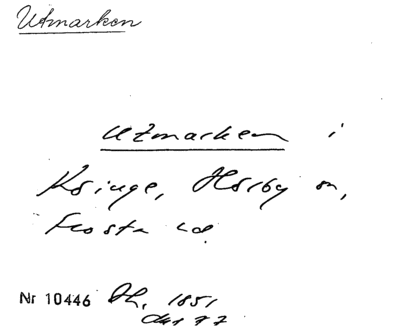 Utmarken
Utmarken i
Kringe, Hörby sn,
Frosta hd.
Nr 10446 Dh. 1851